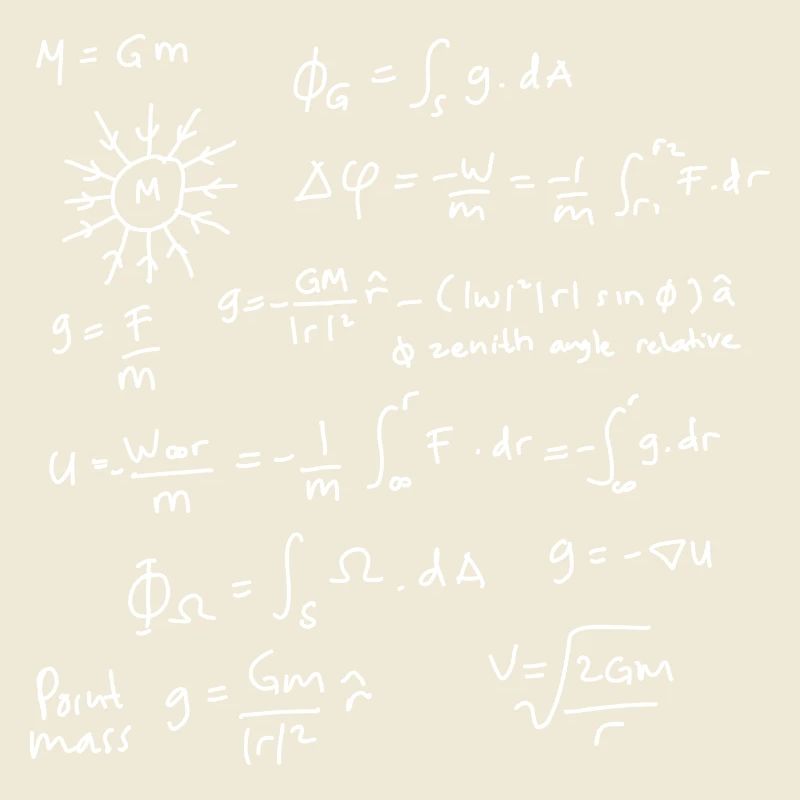 M = Gm
ϕ_G = ∫_S g. dA
M
Δφ = -W/m = -1/m ∫_{r1}^{r2} F.dr
g = F/m
g = - GM/|r|² r̂ - (|w|²|r| sin ϕ) â
ϕ zenith angle relative
U = - W∞r/m = - 1/m ∫_∞^r F . dr = - ∫_∞^r g.dr
Φ_Ω = ∫_S Ω . dA
g = - ∇U
Point mass g = Gm/|r|² r̂
V = √(2Gm/r)